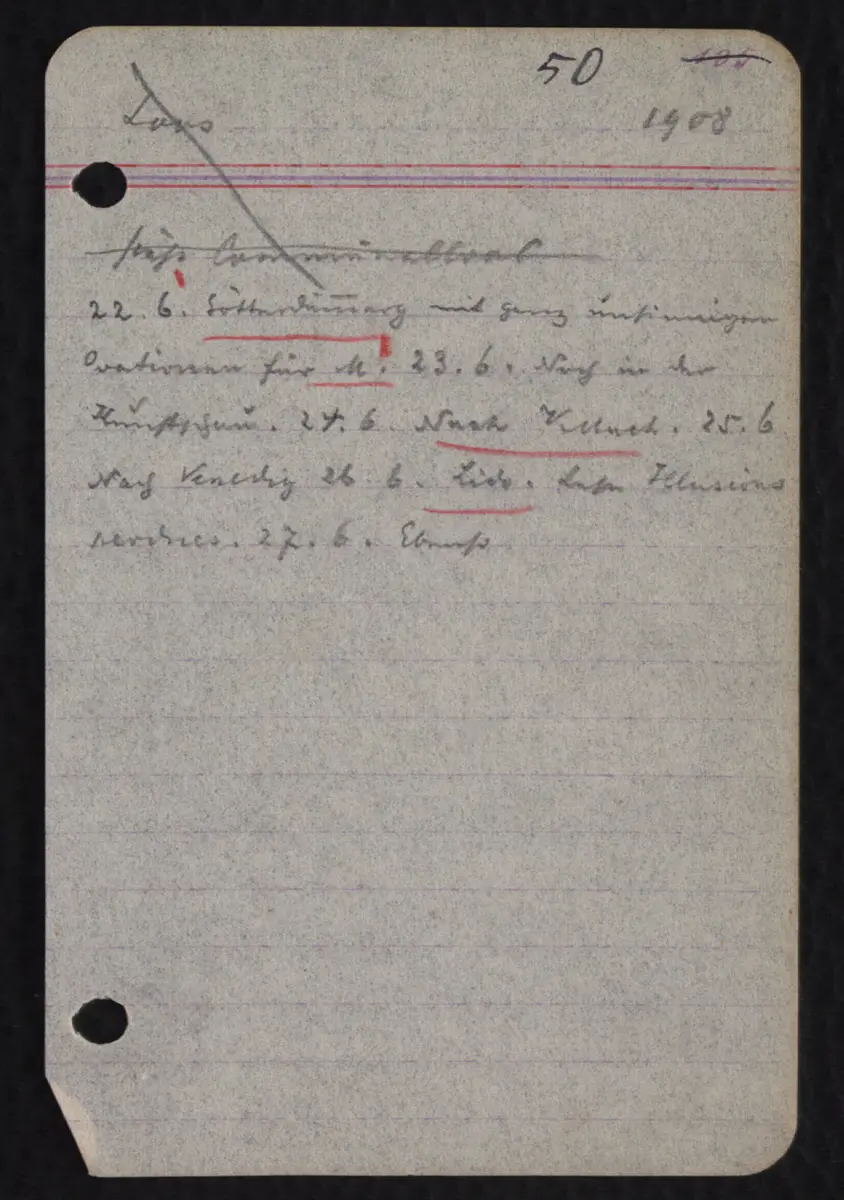 50 105
Loos 1908
siehe
22. 6. Götterdämmerg mit ganz unsinnigen
Ovationen für M. 23. 6. Noch in der
Kunstschau. 24. 6. Nach Villach. 25. 6
Nach Venedig 26 6. Lido. Lese Illusions
perdues. 27. 6. Ebenso